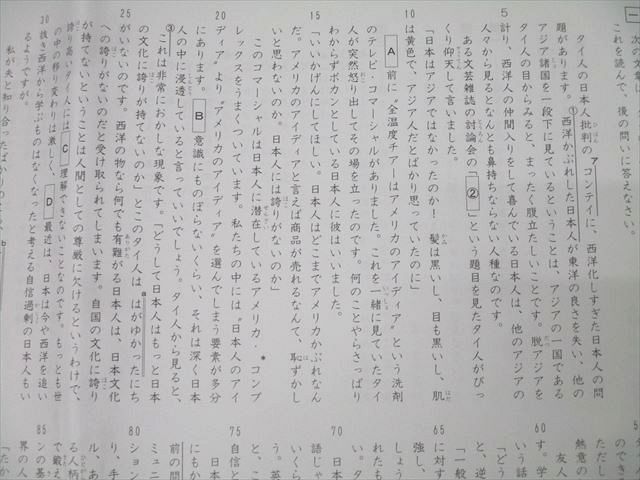 一 次の文
これを読んで、後の問いに答えなさい。
タイ人の日本人批判のアコンテイに、西洋化しすぎた日本人の問
題があります。①西洋かぶれした日本人が東洋の良さを失い、他の
アジア諸国を一段下に見ているということは、アジアの一国である
タイ人の目からみると、まったく腹立たしいことです。脱アジアを
5
計り、西洋人の仲間入りをして喜んでいる日本人は、他のアジアの
人々から見るとなんとも鼻持ちならない人種なのです。
ある文芸雑誌の討論会の「②」という題目を見たタイ人がびっ
くり仰天して言いました。
「日本はアジアではなかったのか！ 髪は黒いし、目も黒いし、肌
10
は黄色で、アジア人だとばかり思っていたのに」
A 前に〝全温度チアーはアメリカのアイディア〟という洗剤
のテレビ・コマーシャルがありました。これを一緒に見ていたタイ
人が突然怒り出してその場を立ったのです。何のことやらさっぱり
わからずポカンとしている日本人に彼はいいました。
15
「いいかげんにしてほしい。日本人はどこまでアメリカかぶれなん
だ。アメリカのアイディアと言えば商品が売れるなんて、恥ずかし
いと思わないのか。日本人には誇りがないのか」
このコマーシャルは日本人に潜在しているアメリカ・*コンプ
レックスをうまくついています。私たちの中には〝日本人のアイ
20
ディア〟より〝アメリカのアイディア〟を選んでしまう要素が多分
にあります。B 意識にものぼらないくらい、それは深く日本
人の中に浸透していると言っていいでしょう。タイ人から見ると、
③これは非常におかしな現象です。「どうして日本人はもっと日本
の文化に誇りが持てないのか」とこのタイ人は aはがゆかったにち
25
がいないのです。西洋の物なら何でも有難がる日本人は、日本文化
への誇りがないのだと受け取られてしまいます。自国の文化に誇り
が持てないということは人間としての尊厳に欠けるというわけで、
誇り高いタイ人には C 理解できないことなのです。もっとも世
の中の移り変わりは激しく、D 最近は、日本は今や西洋を追い
30
抜き西洋から学ぶものはなくなったと考える自信過剰の日本人もい
るようですが。
私が夫と知り合ったばかりの
60
65
70
75
80
85